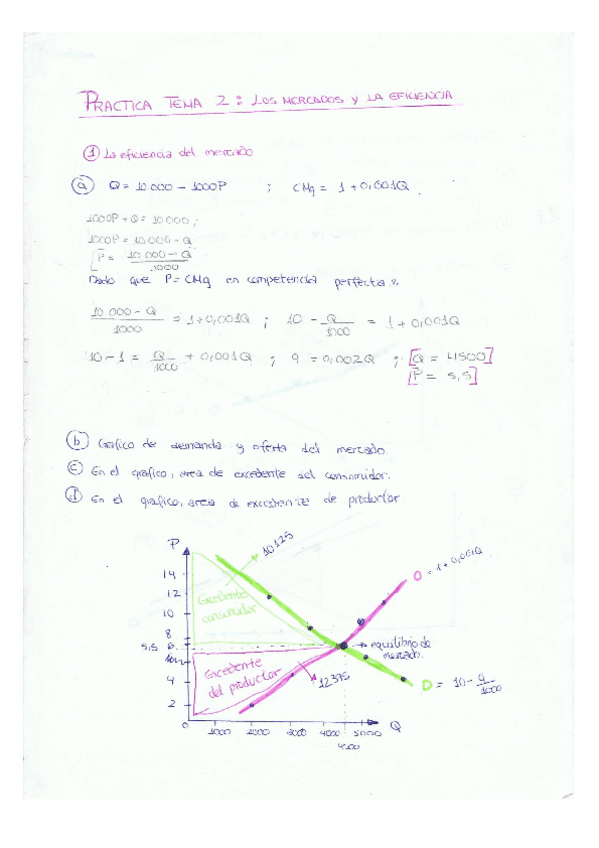 PRACTICA TEMA 2: LOS MERCADOS y LA EFICIENCIA
① La eficiencia del mercado
ⓐ Q = 10.000 - 1000P ; CMg = 1 + 0,001Q
1000P + Q = 10.000 ;
1000P = 10.000 - Q
P = 10.000 - Q / 1000
Dado que P = CMg en competencia perfecta:
10.000 - Q / 1000 = 1 + 0,001Q ; 10 - Q / 1000 = 1 + 0,001Q
10 - 1 = Q / 1000 + 0,001Q ; 9 = 0,002Q ; [Q = 4500]
[P = 5,5]
ⓑ Gráfico de demanda y oferta del mercado.
ⓒ En el gráfico, area de excedente del consumidor.
ⓓ En el gráfico, area de excedente de productor
P
10125
O = 1 + 0,001Q
14
12
10
8
5,5 6
4
2
0
Excedente consumidor
→ equilibrio de mercado.
Excedente del productor
12375
D = 10 - Q / 1000
1000 2000 3000 4000 5000 Q
4500